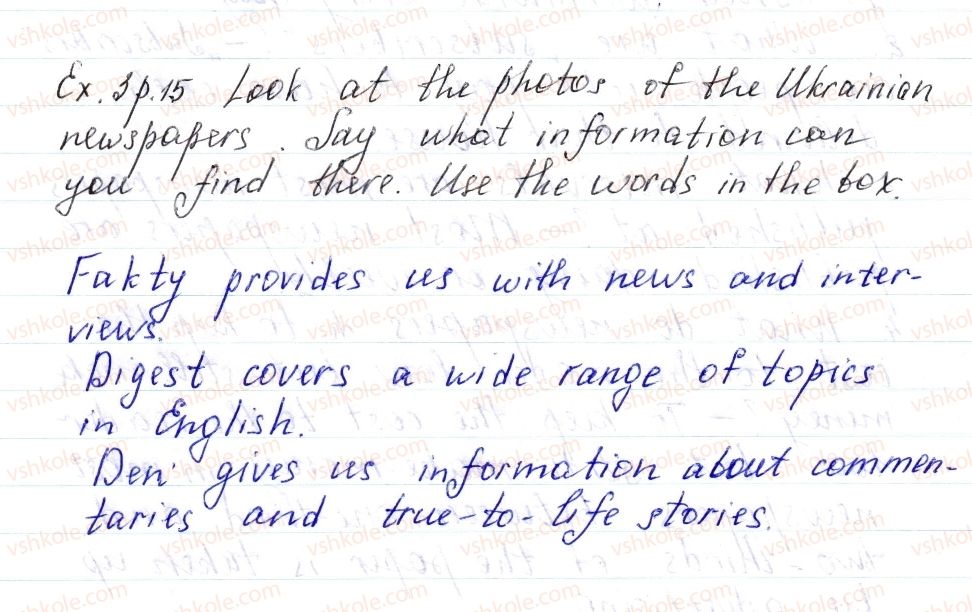 Ex. 3 p. 15 Look at the photos of the Ukrainian
newspapers. Say what information can
you find there. Use the words in the box.
Fakty provides us with news and inter-
views.
Digest covers a wide range of topics
in English.
Den' gives us information about commen-
taries and true-to-life stories.